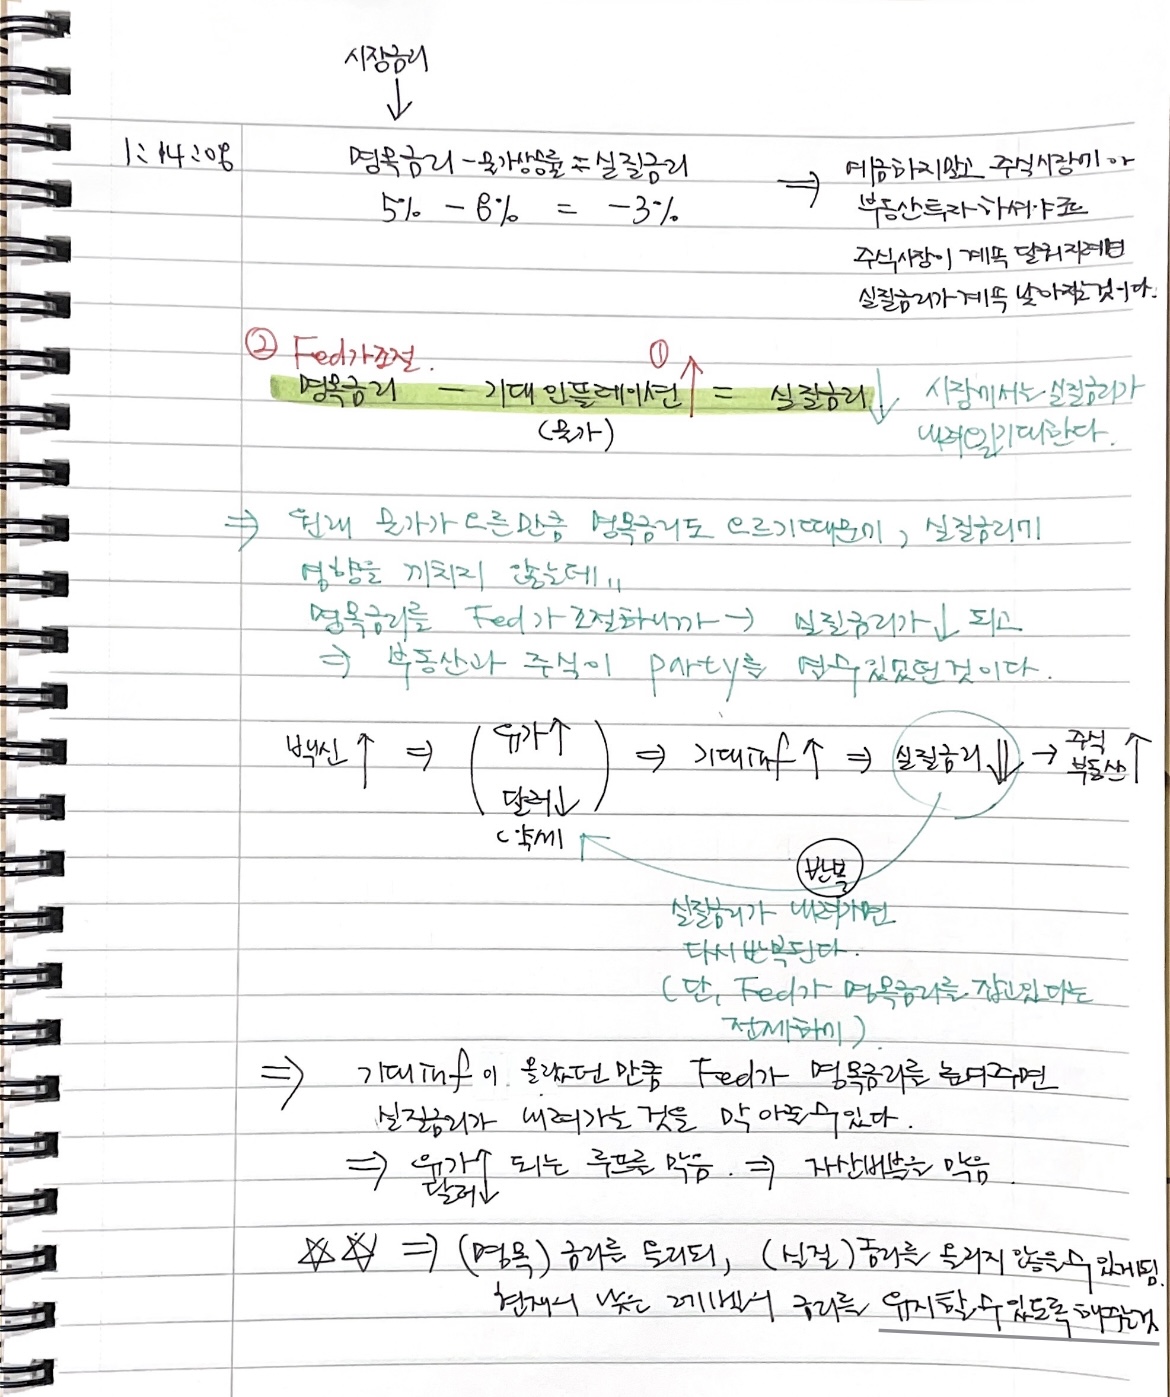 시장금리
↓
1:14:08
명목금리 - 물가상승률 = 실질금리
5% - 8% = -3%
⇒ 예금하지말고 주식시장에 아
부동산투자 하셔야죠
주식시장이 계속 달궈지려면
실질금리가 계속 낮아지는것이다.
② Fed가 조절.
①
명목금리 - 기대 인플레이션↑ = 실질금리↓
(물가)
시장에서는 실질금리가
내려오길 기대한다.
⇒ 원래 물가가 오른만큼 명목금리도 오르기때문에, 실질금리에
영향을 끼치지 않는데,,
명목금리를 Fed가 조절하니까 → 실질금리가↓ 되고
⇒ 부동산과 주식이 party를 열수있었던것이다.
백신↑ ⇒ (유가↑ 달러↓) ⇒ 기대inf↑ ⇒ 실질금리↓↓ → 주식 부동산↑
(약세
반복
실질금리가 내려가면
다시반복된다.
(단, Fed가 명목금리를 잡고있다는
전제하에)
⇒ 기대inf이 올랐던 만큼 Fed가 명목금리를 높여주면
실질금리가 내려가는 것을 막아줄수있다.
⇒ 유가↑ 달러↓ 되는 루프를 막음. ⇒ 자산버블을 막음.
☆☆ ⇒ (명목)금리를 올리되, (실질)금리를 올리지 않을수 있게됨.
현재의 낮은 레벨에서 금리를 유지할 수 있도록 해주는것